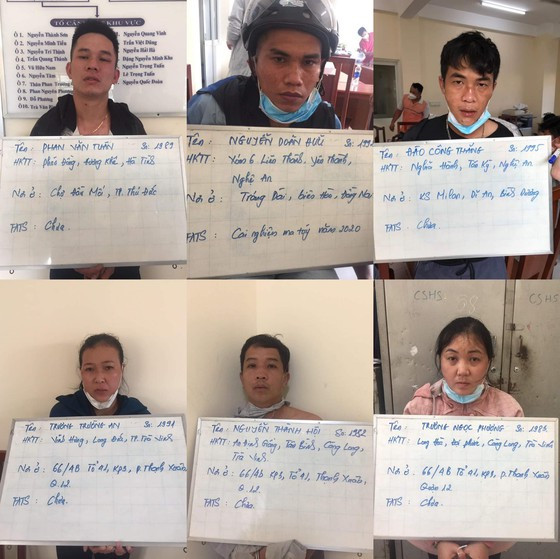 TỔ CẢN
KHU VỰC
Ô 1. Nguyễn Thành Sơn
Ô 2. Nguyễn Minh Tiến
Ô 3. Nguyễn Trí Thịnh
Ô 4. Trần Quang Thành
Ô 5. Vũ Hiền Nam
Ô 6. Nguyễn Tâm
Ô 8. Phan
Ô 9. Đỗ Phương
Nguyễn Quang Vinh
Trần Việt Dũng
Nguyễn Hải Hà
Đặng Nguyễn Minh Kha
Nguyễn Trọng Tuấn
Lê Trọng Tuấn
Nguyễn Quốc Đoàn
Tên : PHAN VĂN TUẤN Sn: 1989
HKTT: Hương Khê, Hà Tĩnh
Nơi ở : Chợ Mới, TP. Thủ Đức
TATS : Chưa
Tên : NGUYỄN DOÃN HỮU
HKTT : Xóm 6 Liên Thành, Yên Thành,
Nghệ An
Nơi ở : Trảng Dài, Biên Hòa, Đồng Nai
TATS : Cai nghiện ma túy năm 2020
Tên : ĐÀO CÔNG THẮNG Sn: 1995
HKTT: Nghĩa Hành, Tân Kỳ, Nghệ An
Nơi ở : KS Milan, Dĩ An, Bình Dương
TATS : Chưa
Tên : TRƯƠNG TRƯỜNG AN Sn: 1991
HKTT: Long Đức, TP. Trà Vinh
Nơi ở : 66/4B Tổ 41, KP3, P. Thạnh Xuân
Q.12.
TATS : Chưa.
Tên : NGUYỄN THÀNH HỘI Sn: 1982
HKTT : Tân Bình, Càng Long,
Trà Vinh
Nơi ở : 66/4b KP3, Tổ 41, Thạnh Xuân,
Q.12.
TATS : Chưa.
CSHS
Tên : TRƯƠNG NGỌC PHƯƠNG Sn: 1988
HKTT: Đại Phước, Càng Long, Trà Vinh
Nơi ở : 66/4B Tổ 41, KP3, P. Thạnh Xuân
Quận 12.
TATS : Chưa.